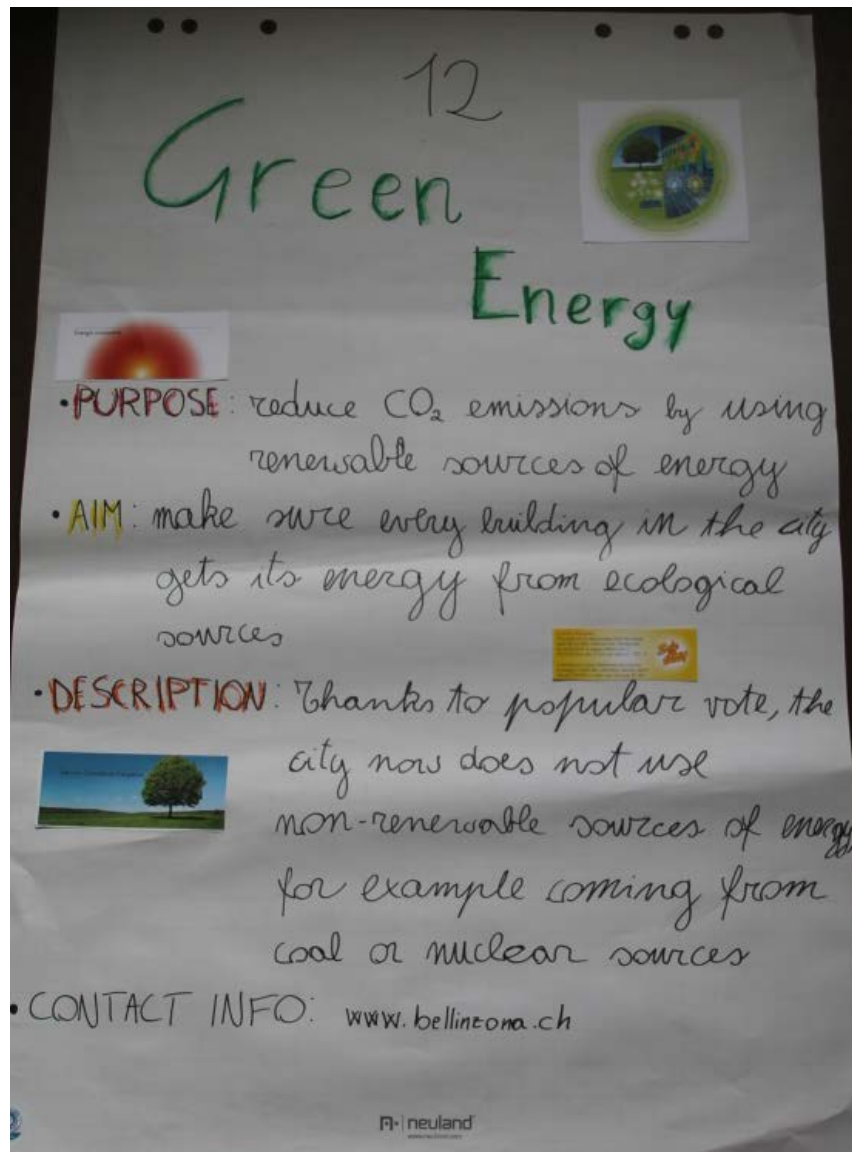 12
Green
Energy
• PURPOSE: reduce CO₂ emissions by using
renewable sources of energy
• AIM: make sure every building in the city
gets its energy from ecological
sources
• DESCRIPTION: Thanks to popular vote, the
city now does not use
non-renewable sources of energy
for example coming from
coal or nuclear sources
• CONTACT INFO: www.bellinzona.ch
neuland